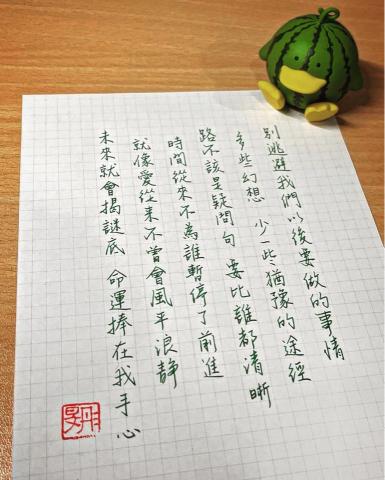 別逃避我們以後要做的事情
多些幻想 少一些猶豫的途經
路不該是疑問句 要比誰都清晰
時間從來不為誰暫停了前進
就像愛從來不曾會風平浪靜
未來就會揭謎底 命運捧在我手心